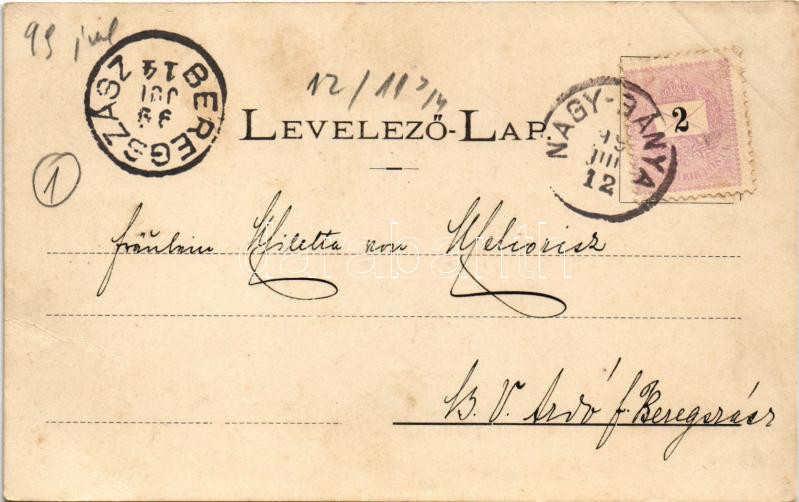 99 júl
BEREGSZÁSZ
99
JUL
14
12/11 7/4
LEVELEZŐ-LAP.
NAGY-BÁNYA
99
JUL
12
2
1
Fräulein Miletta von Meliorisz
darabanth
B. V. Ardó f. Beregszász